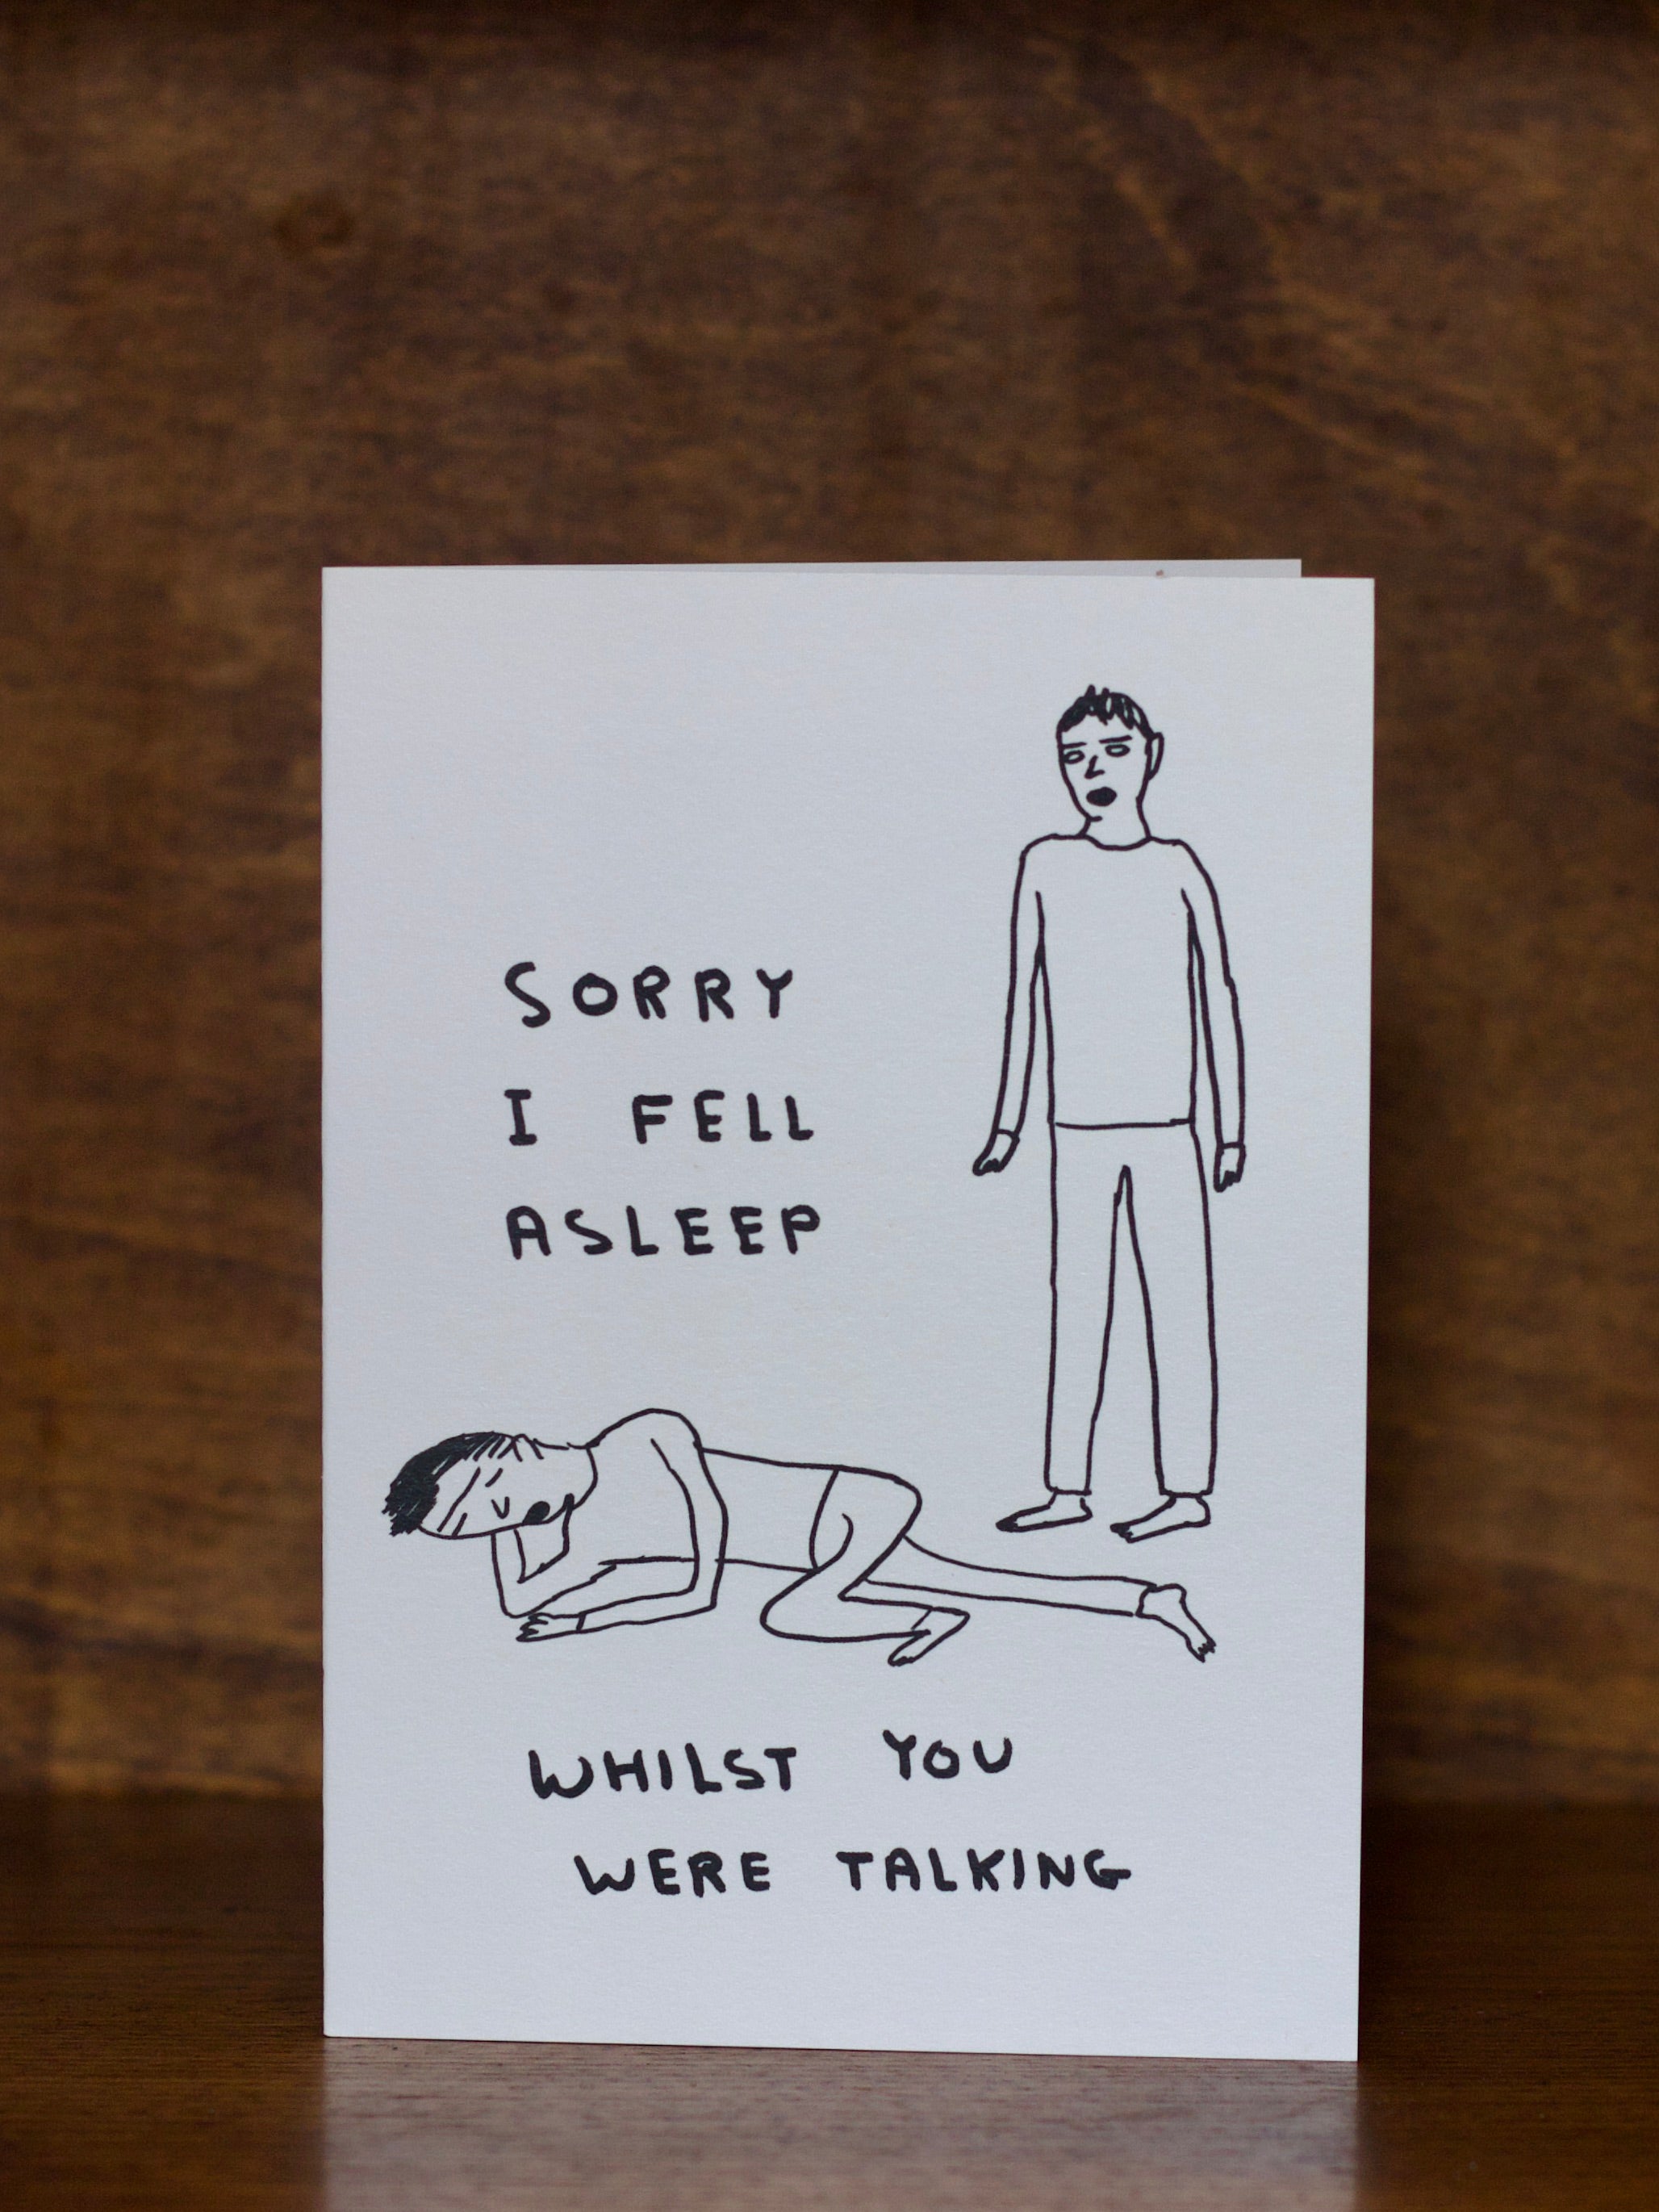 SORRY
I FELL
ASLEEP
WHILST YOU
WERE TALKING